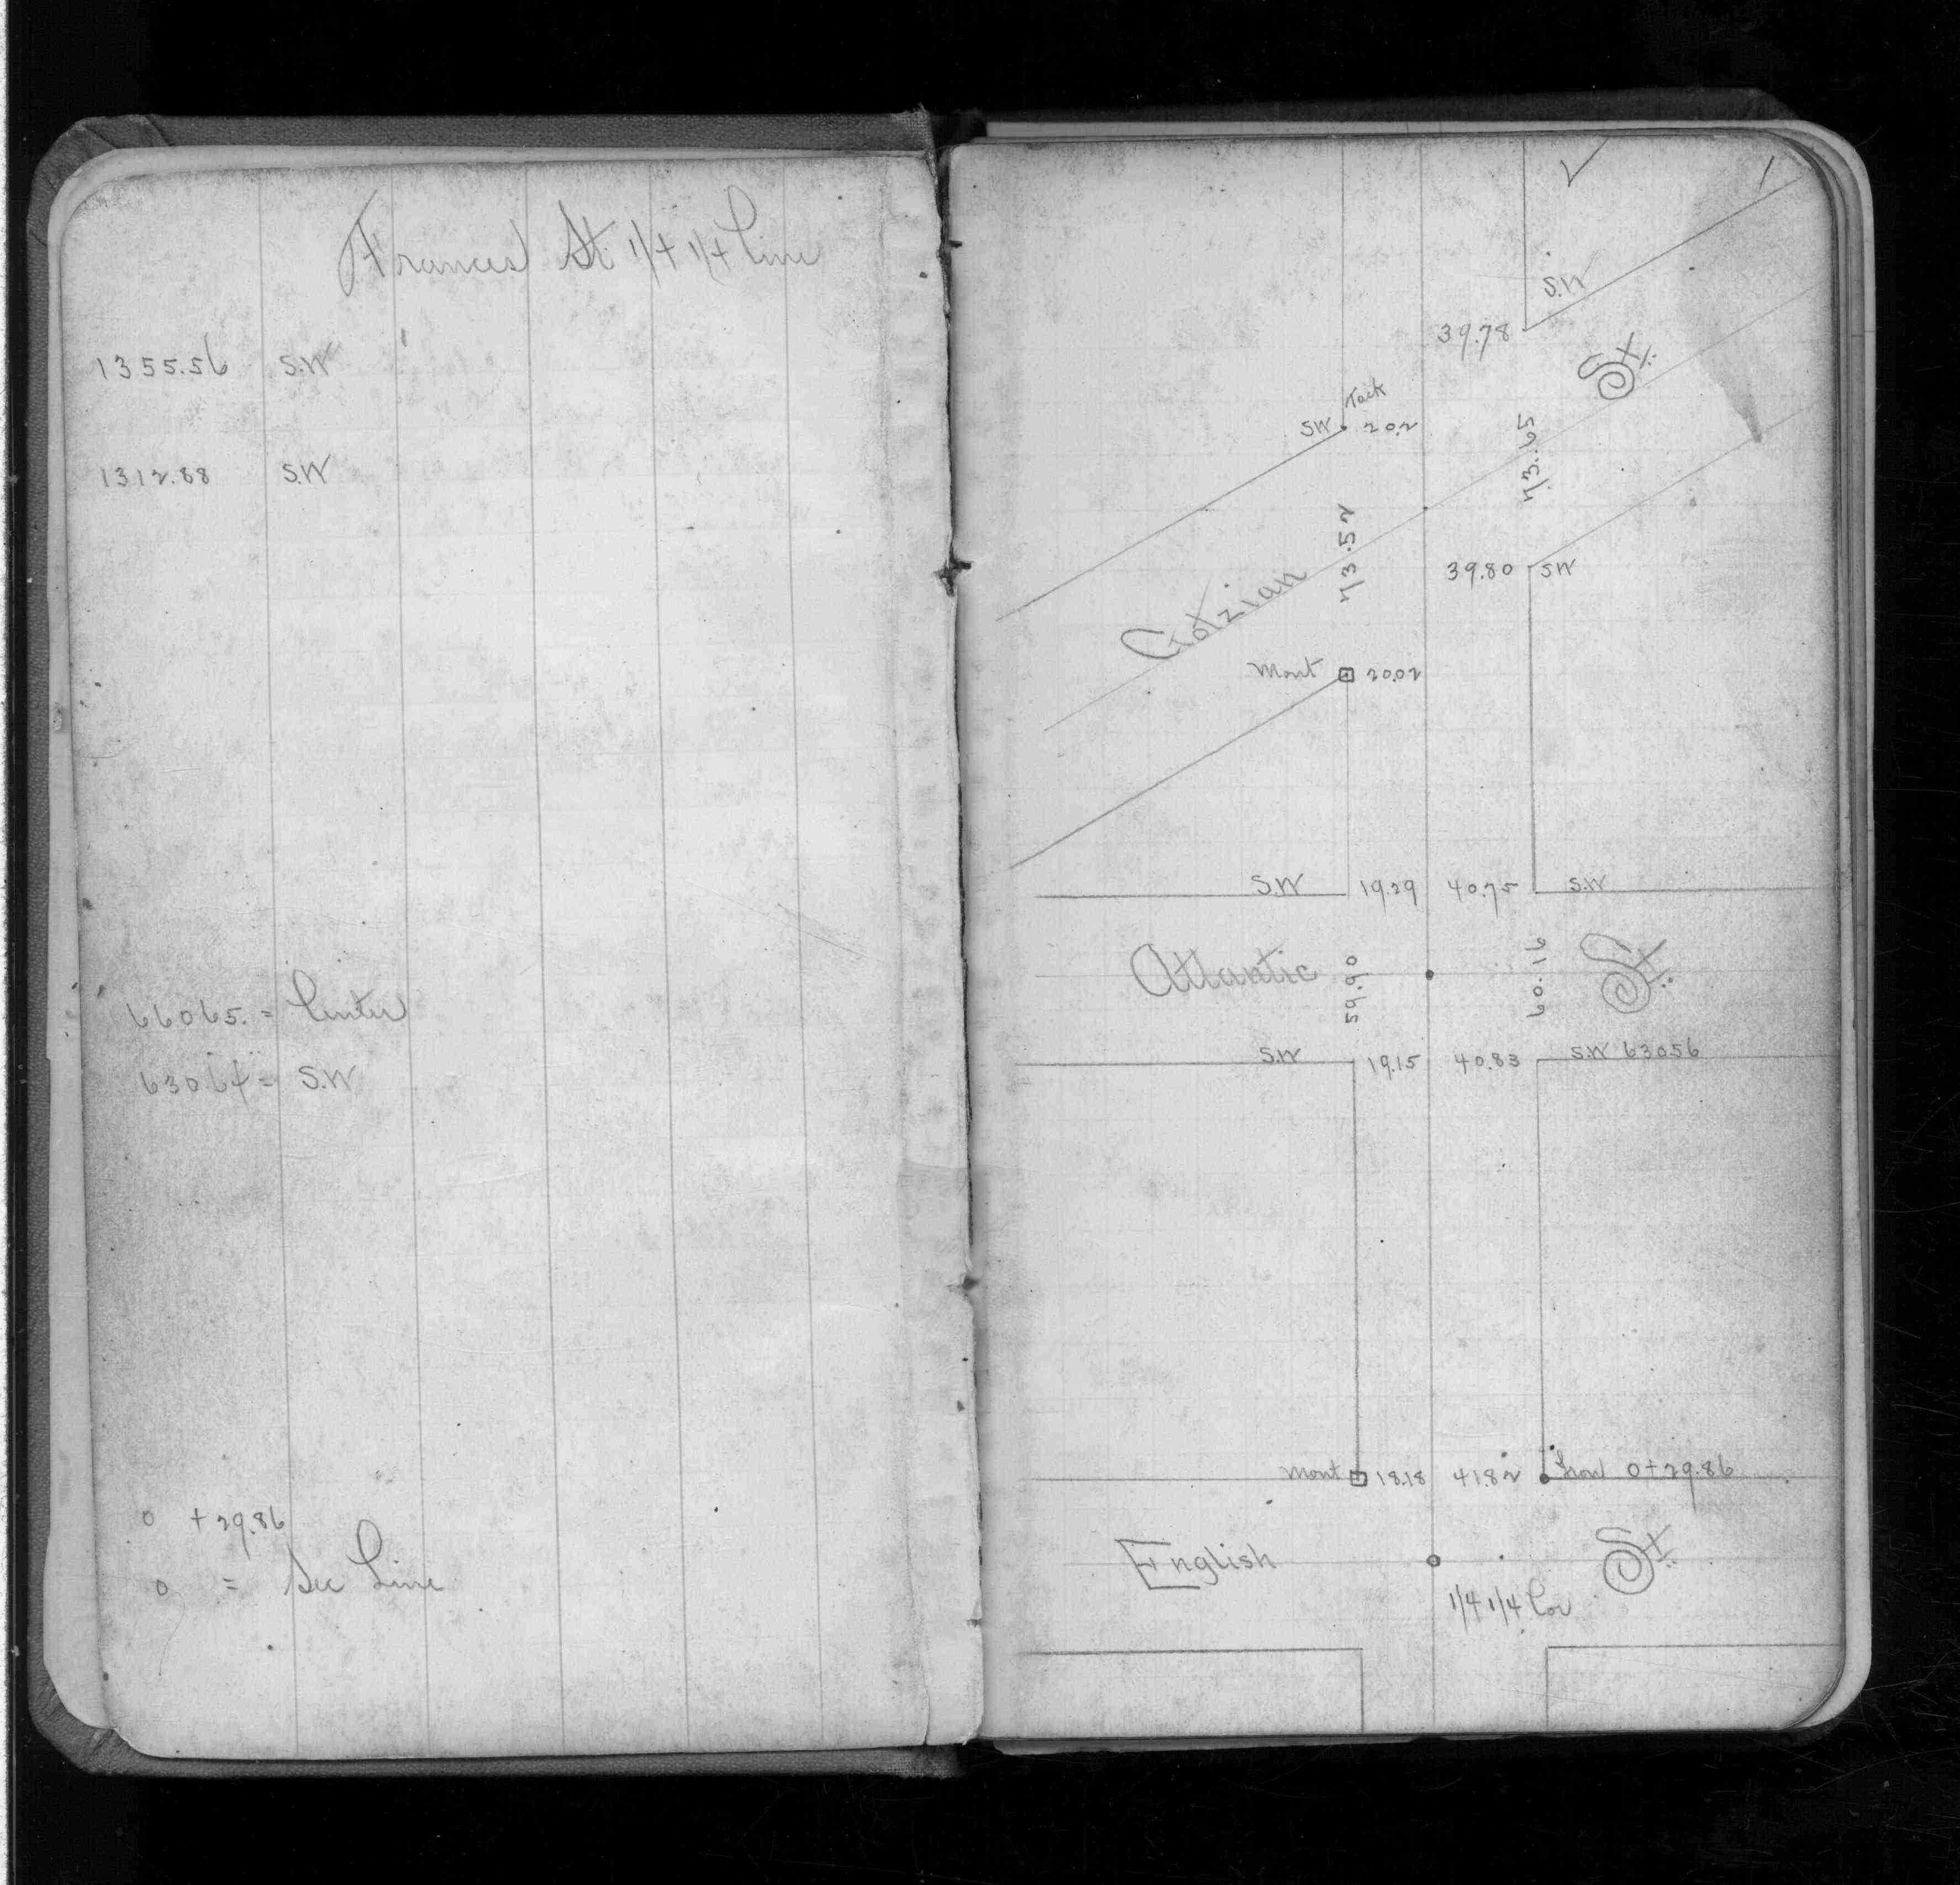 Frances St. 1/4 1/4 Line
1355.56 S.W
1312.88 S.W
660.65. = Center
630.64 = S.W
0 + 29.86
0 = Sec Line
1
S.W
39.78
St.
Tack
SW 20.2
73.65
73.52
39.80 SW
Gotzian
Mont 20.02
S.W 19.29 40.75 S.W
Atlantic 59.90 60.16 St.
S.W 19.15 40.83 S.W 630.56
Mont 18.18 41.82 Iron 0+29.86
English St.
1/4 1/4 Cor